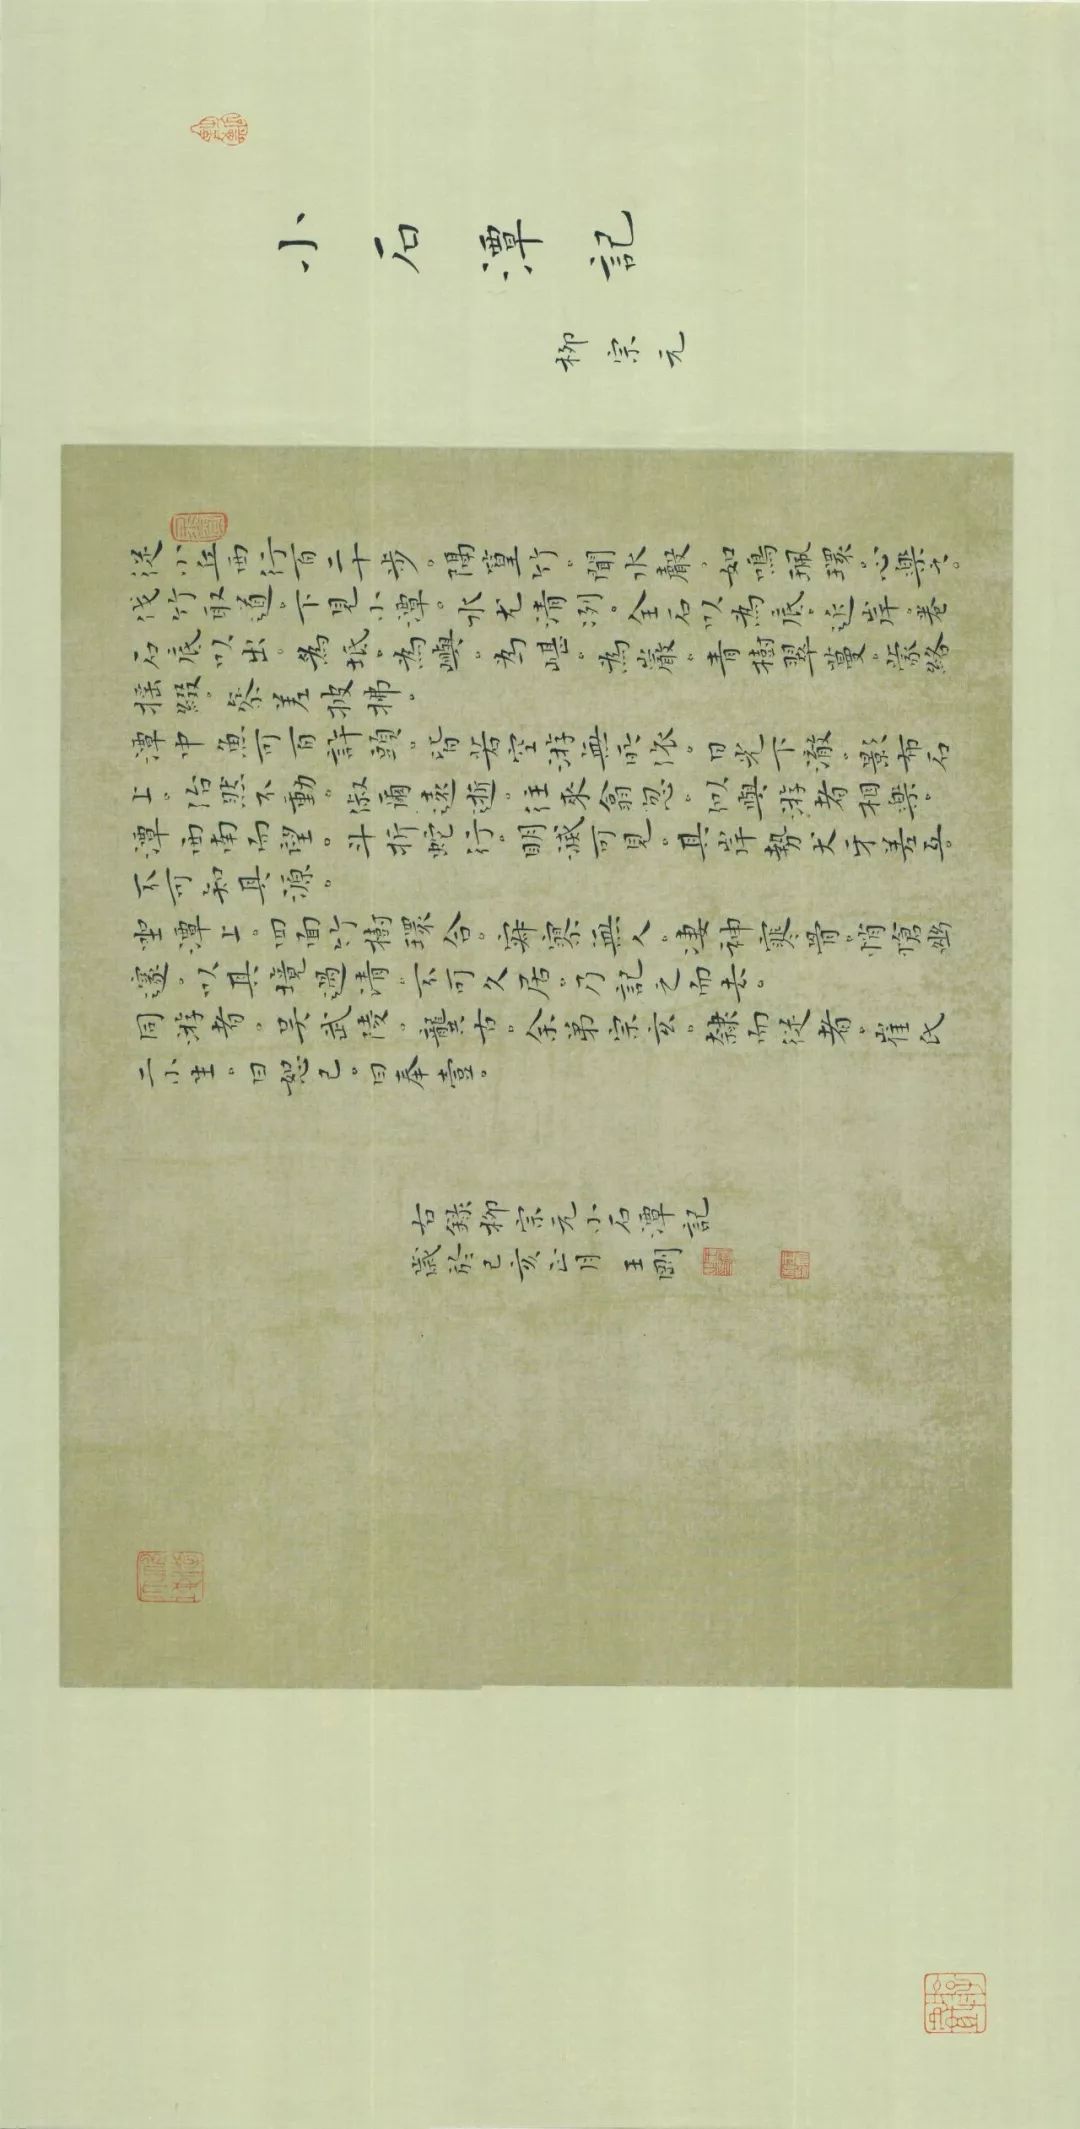 小石潭記
柳宗元
從小丘西行百二十步。隔篁竹。聞水聲。如鳴珮環。心樂之。
伐竹取道。下見小潭。水尤清冽。全石以為底。近岸。卷
石底以出。為坻。為嶼。為嵁。為巖。青樹翠蔓。蒙絡
搖綴。參差披拂。
潭中魚可百許頭。皆若空游無所依。日光下澈。影布石
上。佁然不動。俶爾遠逝。往來翕忽。似與游者相樂。
潭西南而望。斗折蛇行。明滅可見。其岸勢犬牙差互。
不可知其源。
坐潭上。四面竹樹環合。寂寥無人。凄神寒骨。悄愴幽
邃。以其境過清。不可久居。乃記之而去。
同游者。吳武陵。龔古。余弟宗玄。隸而從者。崔氏
二小生。曰恕己。曰奉壹。
右錄柳宗元小石潭記
歲於己亥正月 王剛